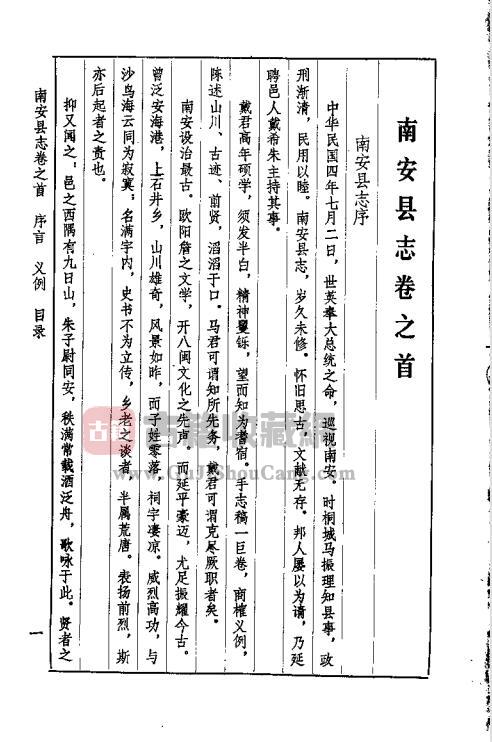 南安县志卷之首
南安县志序
中华民国四年七月二日，世英奉大总统之命，巡视南安。时桐城马振理知县事，政
刑渐清，民用以睦。南安县志，岁久未修。怀旧思古，文献无存。邦人屡以为请，乃延
聘邑人戴希朱主持其事。
戴君高年硕学，须发半白，精神矍铄，望而知为耆宿。手志稿一巨卷，商榷义例，
陈述山川、古迹、前贤，滔滔于口。马君可谓知所先务，戴君可谓克尽厥职者矣。
南安设治最古。欧阳詹之文学，开八闽文化之先声。而延平豪迈，尤足振耀今古。
曾泛安海港，上石井乡，山川雄奇，风景如昨，而子姓零落，祠宇凄凉。威烈高功，与
沙鸟海云同为寂寞；名满宇内，史书不为立传，乡老之谈者，半属荒唐。表扬前烈，斯
亦后起者之责也。
抑又闻之：邑之西隅有九日山，朱子尉同安，秩满常载酒泛舟，歌咏于此。贤者之
南安县志卷之首 序言 义例 目录
一
古籍收藏網
www.GuJiShouCang.com